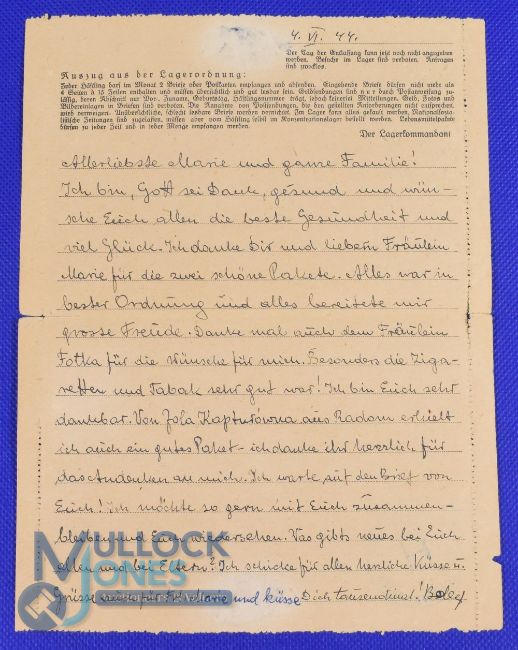 4. VI. 44.
Der Tag der Entlassung kann jetzt noch nicht angegeben
werden. Besuche im Lager sind verboten. Anfragen
sind zwecklos.
Auszug aus der Lagerordnung:
Jeder Häftling darf im Monat 2 Briefe oder Postkarten empfangen und absenden. Eingehende Briefe dürfen nicht mehr als
4 Seiten à 15 Zeilen enthalten und müssen übersichtlich und gut lesbar sein. Geldsendungen sind nur durch Postanweisung zu-
lässig, deren Abschnitt nur Vor-, Zuname, Geburtstag, Häftlingsnummer trägt, jedoch keinerlei Mitteilungen. Geld, Fotos und
Bildereinlagen in Briefen sind verboten. Die Annahme von Postsendungen, die den gestellten Anforderungen nicht entsprechen,
wird verweigert. Unübersichtliche, schlecht lesbare Briefe werden vernichtet. Im Lager kann alles gekauft werden. Nationalsozia-
listische Zeitungen sind zugelassen, müssen aber vom Häftling selbst im Konzentrationslager bestellt werden. Lebensmittelpakete
dürfen zu jeder Zeit und in jeder Menge empfangen werden.
Der Lagerkommandant
Allerliebste Marie und ganze Familie!
Ich bin, Gott sei Dank, gesund und wün-
sche Euch allen die beste Gesundheit und
viel Glück. Ich danke Dir und liebem Fräulein
Marie für die zwei schöne Pakete. Alles war in
bester Ordnung und alles bereitete mir
grosse Freude. Danke mal auch dem Fräulein
Fotka für die Wünsche für mich. Besonders die Ziga-
retten und Tabak sehr gut war! Ich bin Euch sehr
dankbar. Von Zofa Kapturówna aus Radom erhielt
ich auch ein gutes Paket - ich danke ihr herzlich für
das Andenken an mich. Ich warte auf den Brief von
Euch! Ich möchte so gern mit Euch zusammen-
bleiben und Euch wiedersehen. Was gibts neues bei Euch
allen und bei Eltern? Ich schicke für allen herzliche Küsse u.
Grüsse auch für Frl. Marie und küsse Dich tausendmal! Bolef
MULLOCK
JONES